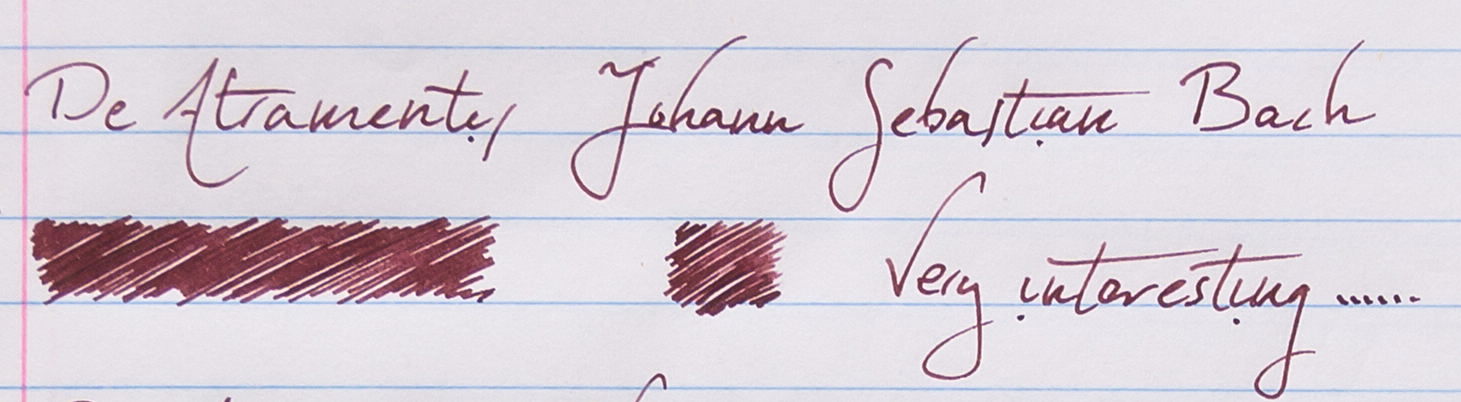 De Atramentis Johann Sebastian Bach
Very interesting ......